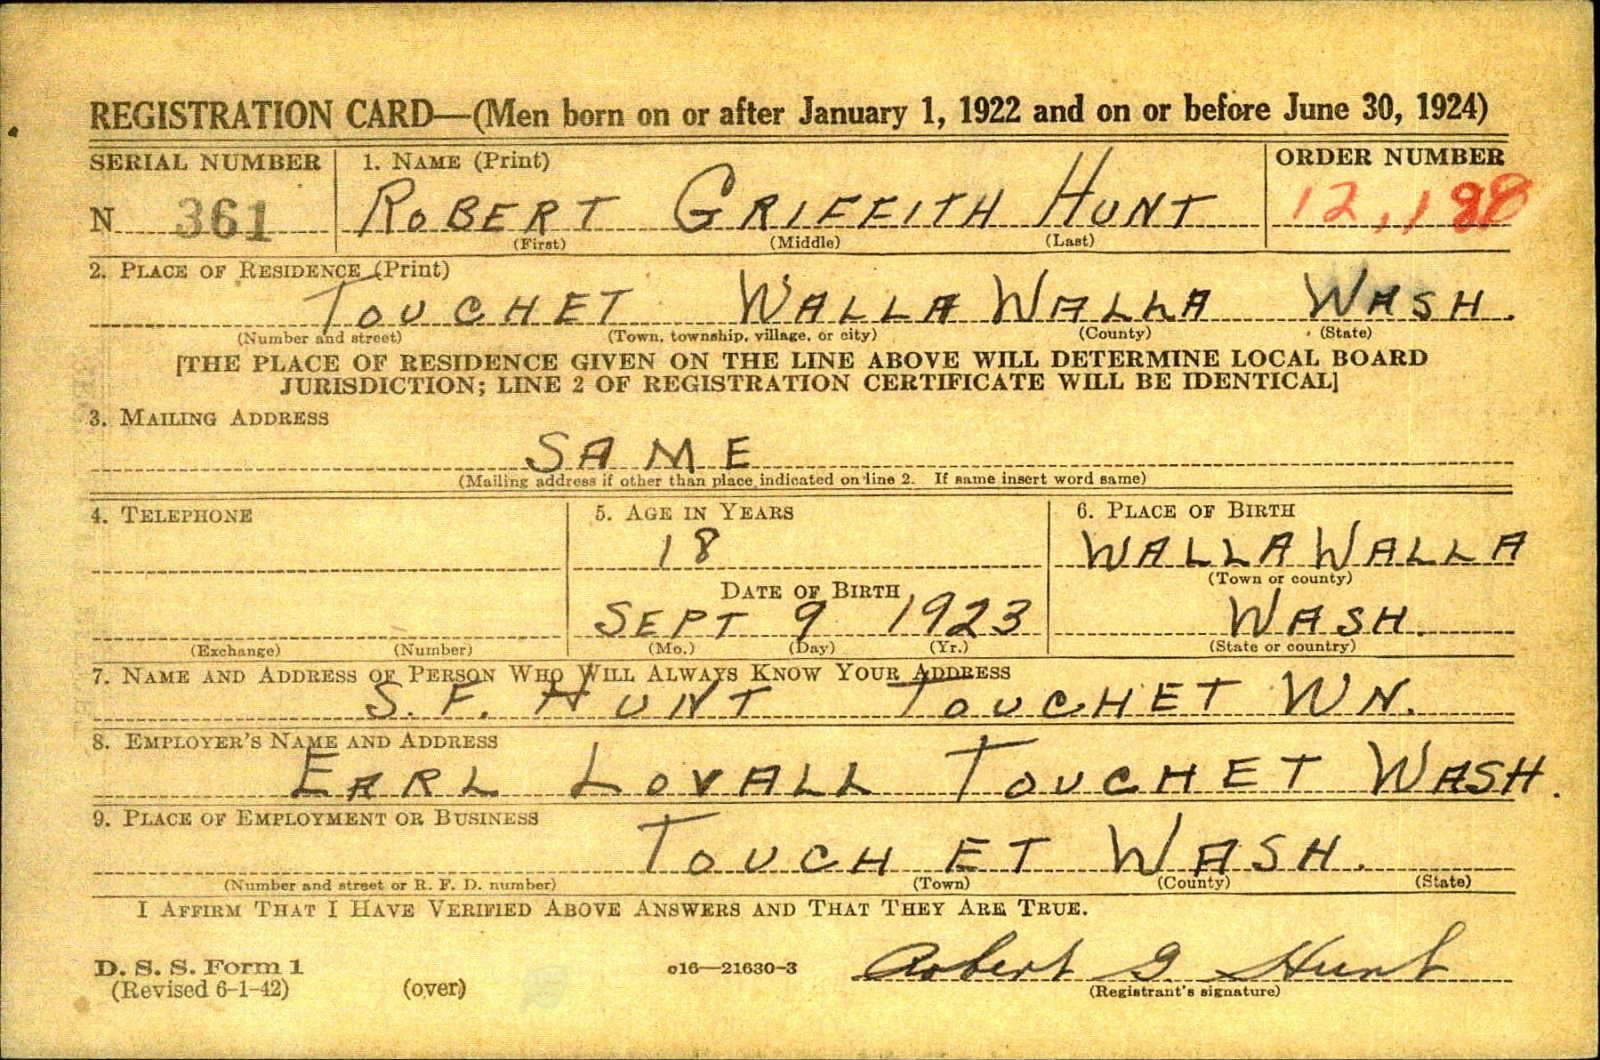 REGISTRATION CARD—(Men born on or after January 1, 1922 and on or before June 30, 1924)
SERIAL NUMBER 1. NAME (Print) ORDER NUMBER
N 361 ROBERT GRIFFITH HUNT 12,188
(First) (Middle) (Last)
2. PLACE OF RESIDENCE (Print)
TOUCHET WALLA WALLA WASH.
(Number and street) (Town, township, village, or city) (County) (State)
[THE PLACE OF RESIDENCE GIVEN ON THE LINE ABOVE WILL DETERMINE LOCAL BOARD
JURISDICTION; LINE 2 OF REGISTRATION CERTIFICATE WILL BE IDENTICAL]
3. MAILING ADDRESS
SAME
(Mailing address if other than place indicated on line 2. If same insert word same)
4. TELEPHONE 5. AGE IN YEARS 6. PLACE OF BIRTH
18 WALLA WALLA
(Town or county)
DATE OF BIRTH
SEPT 9 1923 WASH.
(Exchange) (Number) (Mo.) (Day) (Yr.) (State or country)
7. NAME AND ADDRESS OF PERSON WHO WILL ALWAYS KNOW YOUR ADDRESS
S. F. HUNT TOUCHET WN.
8. EMPLOYER'S NAME AND ADDRESS
EARL LOVALL TOUCHET WASH.
9. PLACE OF EMPLOYMENT OR BUSINESS
TOUCHET WASH.
(Number and street or R. F. D. number) (Town) (County) (State)
I AFFIRM THAT I HAVE VERIFIED ABOVE ANSWERS AND THAT THEY ARE TRUE.
D. S. S. Form 1 o16—21630-3 Robert G. Hunt
(Revised 6-1-42) (over) (Registrant's signature)